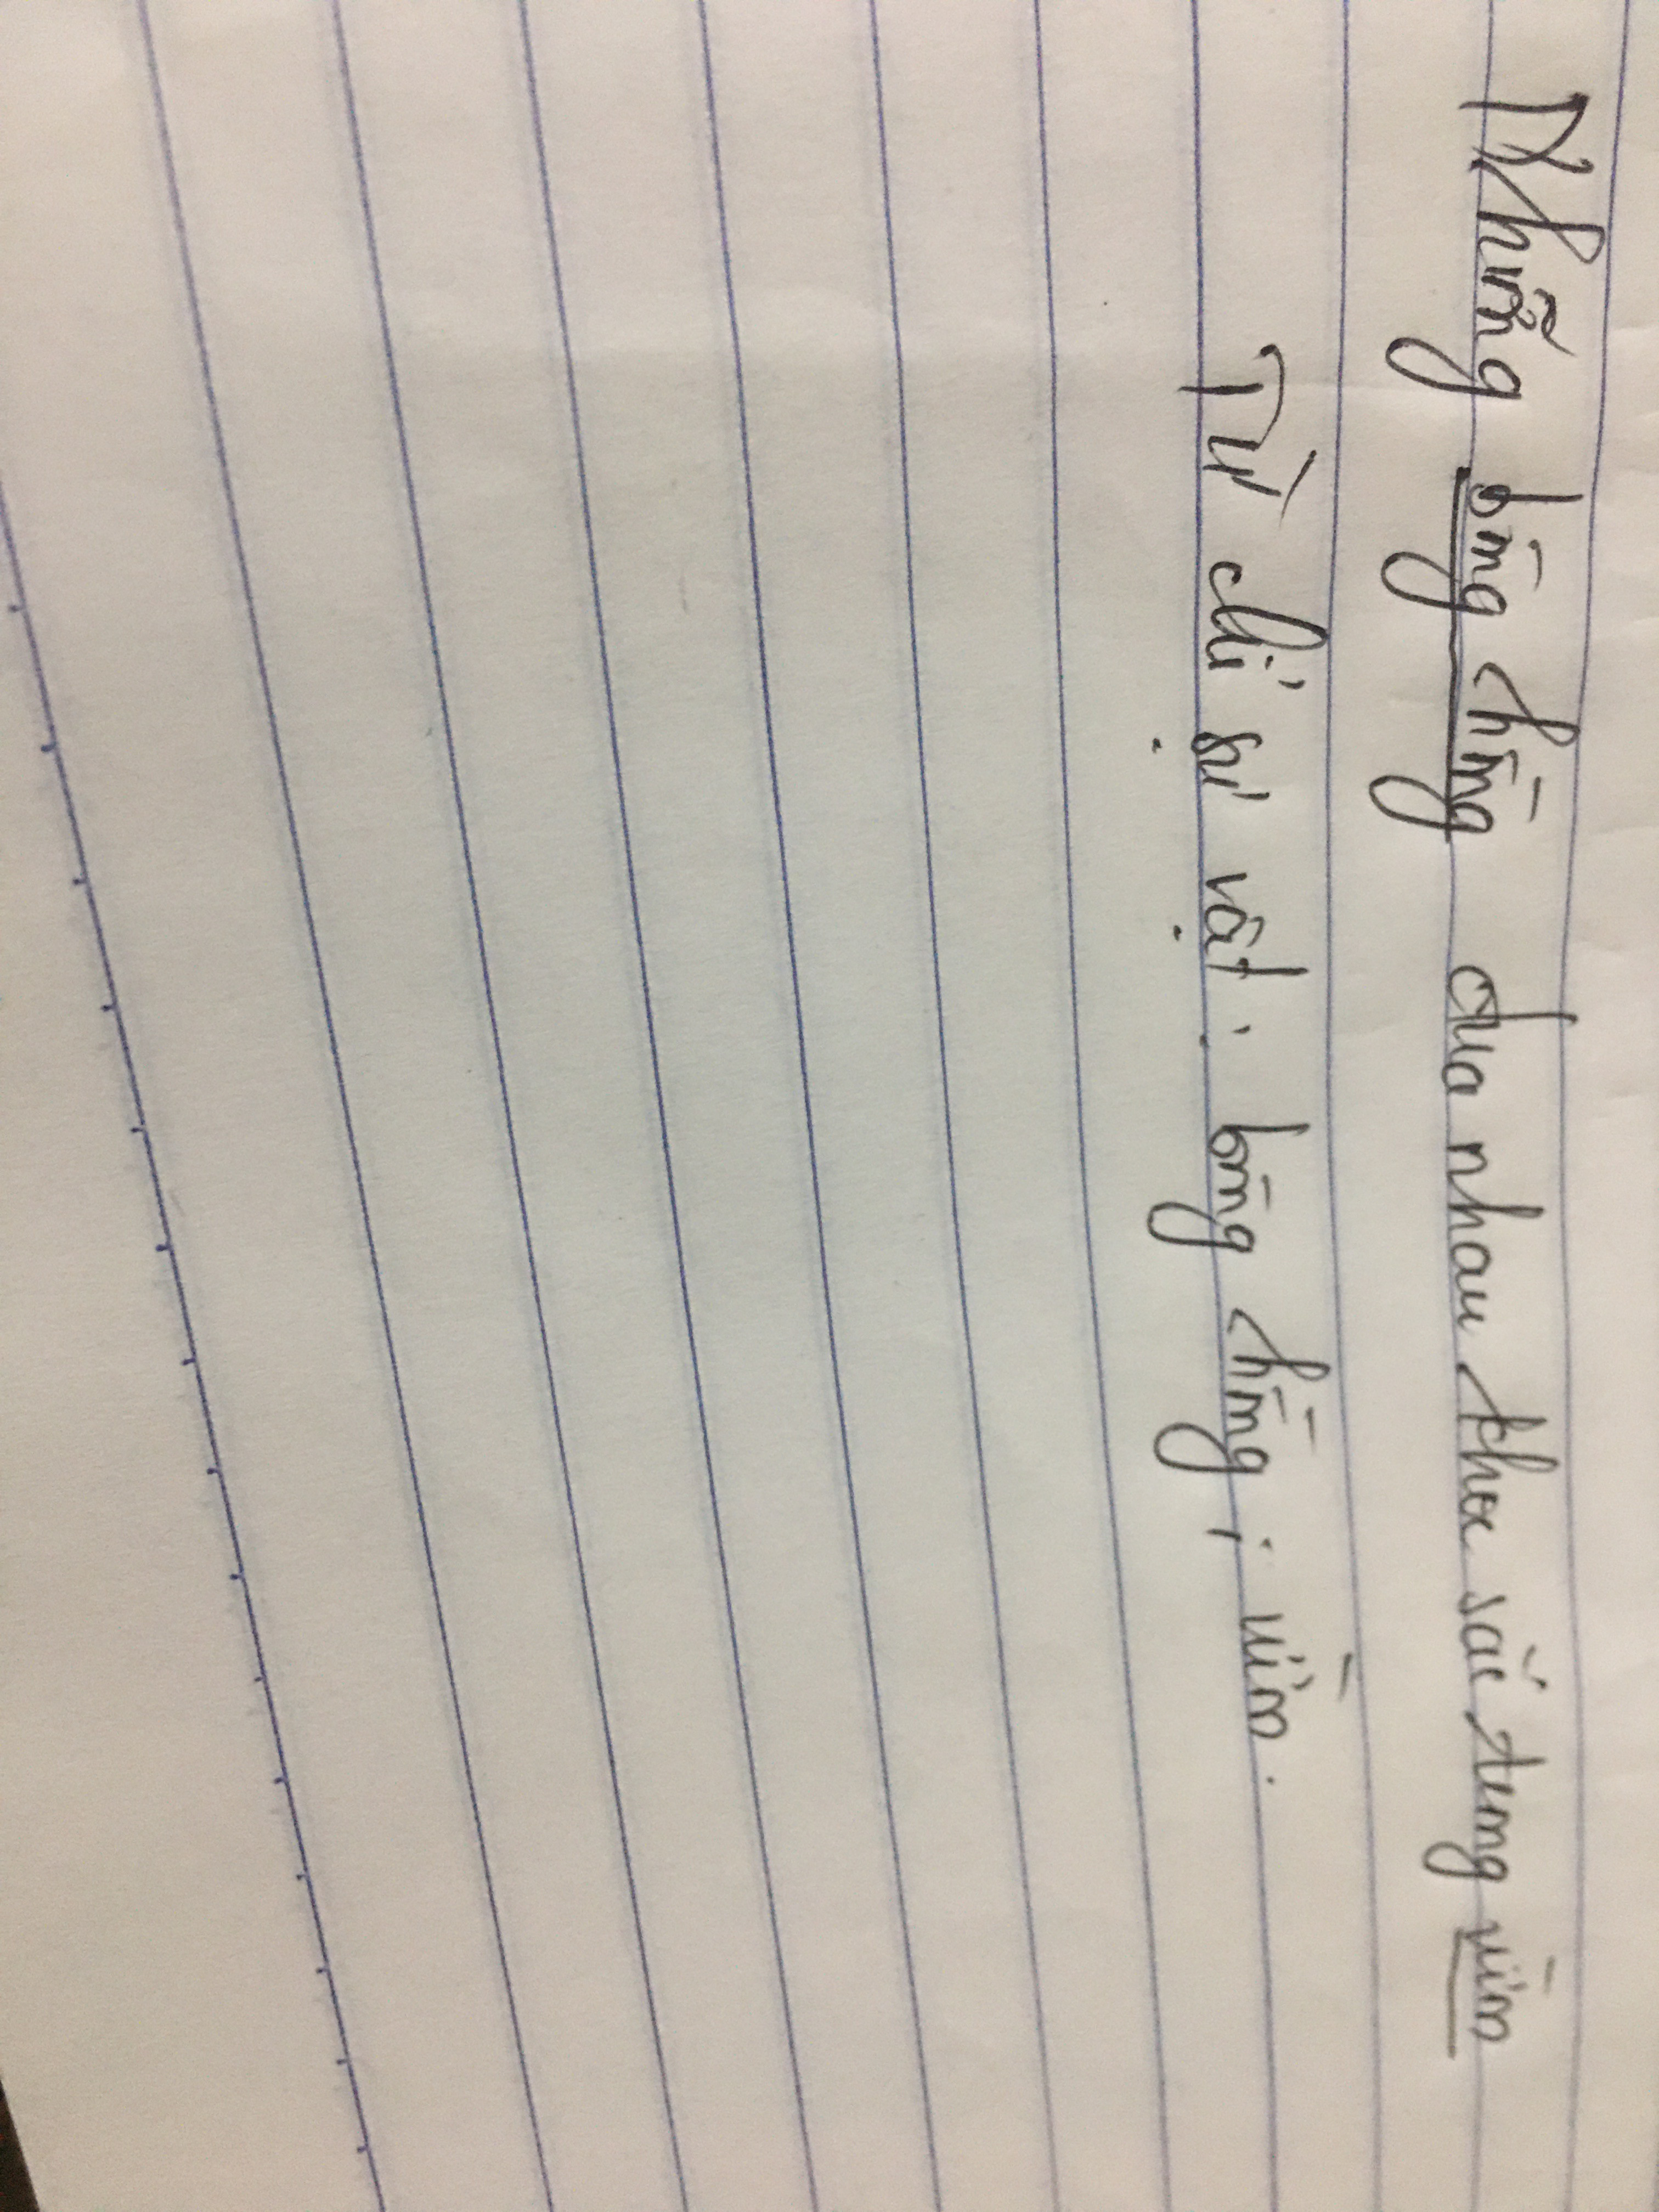 Những bông hồng đua nhau khoe sắc trong vườn
Từ chỉ sự vật: bông hồng; vườn.